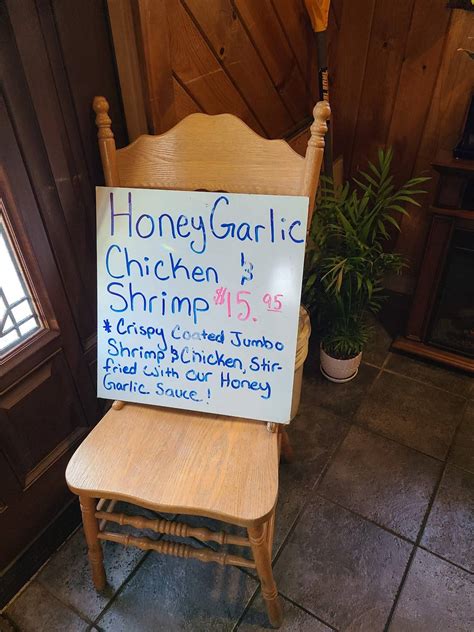 Honey Garlic
Chicken &
Shrimp $15.95
* Crispy Coated Jumbo
Shrimp & Chicken, Stir-
fried with our Honey
Garlic Sauce!